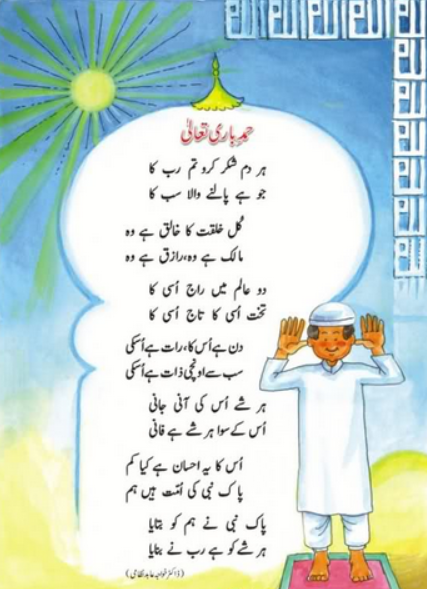 حمدِ باری تعالیٰ
ہر دم شکر کرو تم رب کا
جو ہے پالنے والا سب کا
کُل خلقت کا خالق ہے وہ
مالک ہے وہ، رازق ہے وہ
دو عالم میں راج اُسی کا
تخت اُسی کا تاج اُسی کا
دن ہے اُس کا، رات ہے اُسکی
سب سے اونچی ذات ہے اُسکی
ہر شے اُس کی آنی جانی
اُس کے سوا ہر شے ہے فانی
اُس کا یہ احسان ہے کیا کم
پاک نبی کی اُمّت ہیں ہم
پاک نبی نے ہم کو بتایا
ہر شے کو ہے رب نے بنایا
(ڈاکٹر خواجہ عابد نظامی)